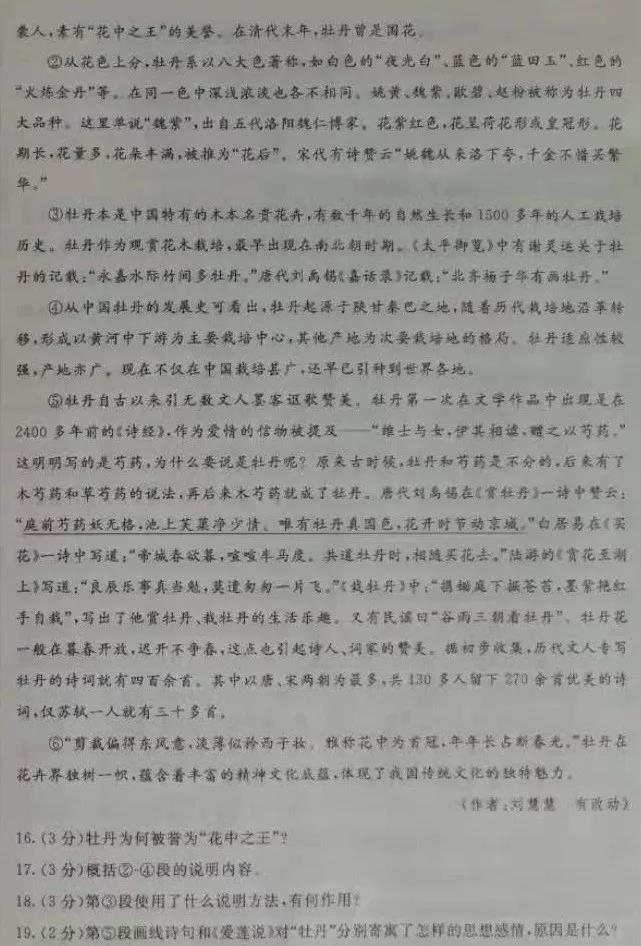 袭人,素有“花中之王”的美誉。在清代末年,牡丹曾是国花。
②从花色上分,牡丹系以八大色著称,如白色的“夜光白”、蓝色的“蓝田玉”、红色的
“火炼金丹”等。在同一色中深浅浓淡也各不相同。姚黄、魏紫、欧碧、赵粉被称为牡丹四
大品种。这里单说“魏紫”,出自五代洛阳魏仁博家。花紫红色,花呈荷花形或皇冠形。花
期长,花量多,花朵丰满,被推为“花后”。宋代有诗赞云“姚魏从来洛下夸,千金不惜买繁
华。”
③牡丹本是中国特有的木本名贵花卉,有数千年的自然生长和1500多年的人工栽培
历史。牡丹作为观赏花木栽培,最早出现在南北朝时期。《太平御览》中有谢灵运关于牡
丹的记载:“永嘉水际竹间多牡丹。”唐代刘禹锡《嘉话录》记载:“北齐杨子华有画牡丹。”
④从中国牡丹的发展史可看出,牡丹起源于陕甘秦巴之地,随着历代栽培地沿革转
移,形成以黄河中下游为主要栽培中心,其他产地为次要栽培地的格局。牡丹适应性较
强,产地亦广。现在不仅在中国栽培甚广,还早已引种到世界各地。
⑤牡丹自古以来引无数文人墨客讴歌赞美。牡丹第一次在文学作品中出现是在
2400多年前的《诗经》,作为爱情的信物被提及——“维士与女,伊其相谑,赠之以芍药。”
这明明写的是芍药,为什么要说是牡丹呢?原来古时候,牡丹和芍药是不分的,后来有了
木芍药和草芍药的说法,再后来木芍药就成了牡丹。唐代刘禹锡在《赏牡丹》一诗中赞云:
“庭前芍药妖无格,池上芙蕖净少情。唯有牡丹真国色,花开时节动京城。”白居易在《买
花》一诗中写道:“帝城春欲暮,喧喧车马度。共道牡丹时,相随买花去。”陆游的《赏花至湖
上》写道:“良辰乐事真当勉,莫遣匆匆一片飞。”《栽牡丹》中:“携锄庭下斸苍苔,墨紫艳红
手自栽”,写出了他赏牡丹、栽牡丹的生活乐趣。又有民谣曰“谷雨三朝看牡丹”。牡丹花
一般在暮春开放,迟开不争春,这点也引起诗人、词家的赞美。据初步收集,历代文人专写
牡丹的诗词就有四百余首。其中以唐、宋两朝为最多,共130多人留下270余首优美的诗
词,仅苏轼一人就有三十多首。
⑥“剪裁偏得东风意,淡薄似矜西子妆。雅称花中为首冠,年年长占断春光。”牡丹在
花卉界独树一帜,蕴含着丰富的精神文化底蕴,体现了我国传统文化的独特魅力。
(作者:刘慧慧 有改动)
16.(3分)牡丹为何被誉为“花中之王”?
17.(3分)概括②-④段的说明内容。
18.(3分)第③段使用了什么说明方法,有何作用?
19.(2分)第⑤段画线诗句和《爱莲说》对“牡丹”分别寄寓了怎样的思想感情,原因是什么?